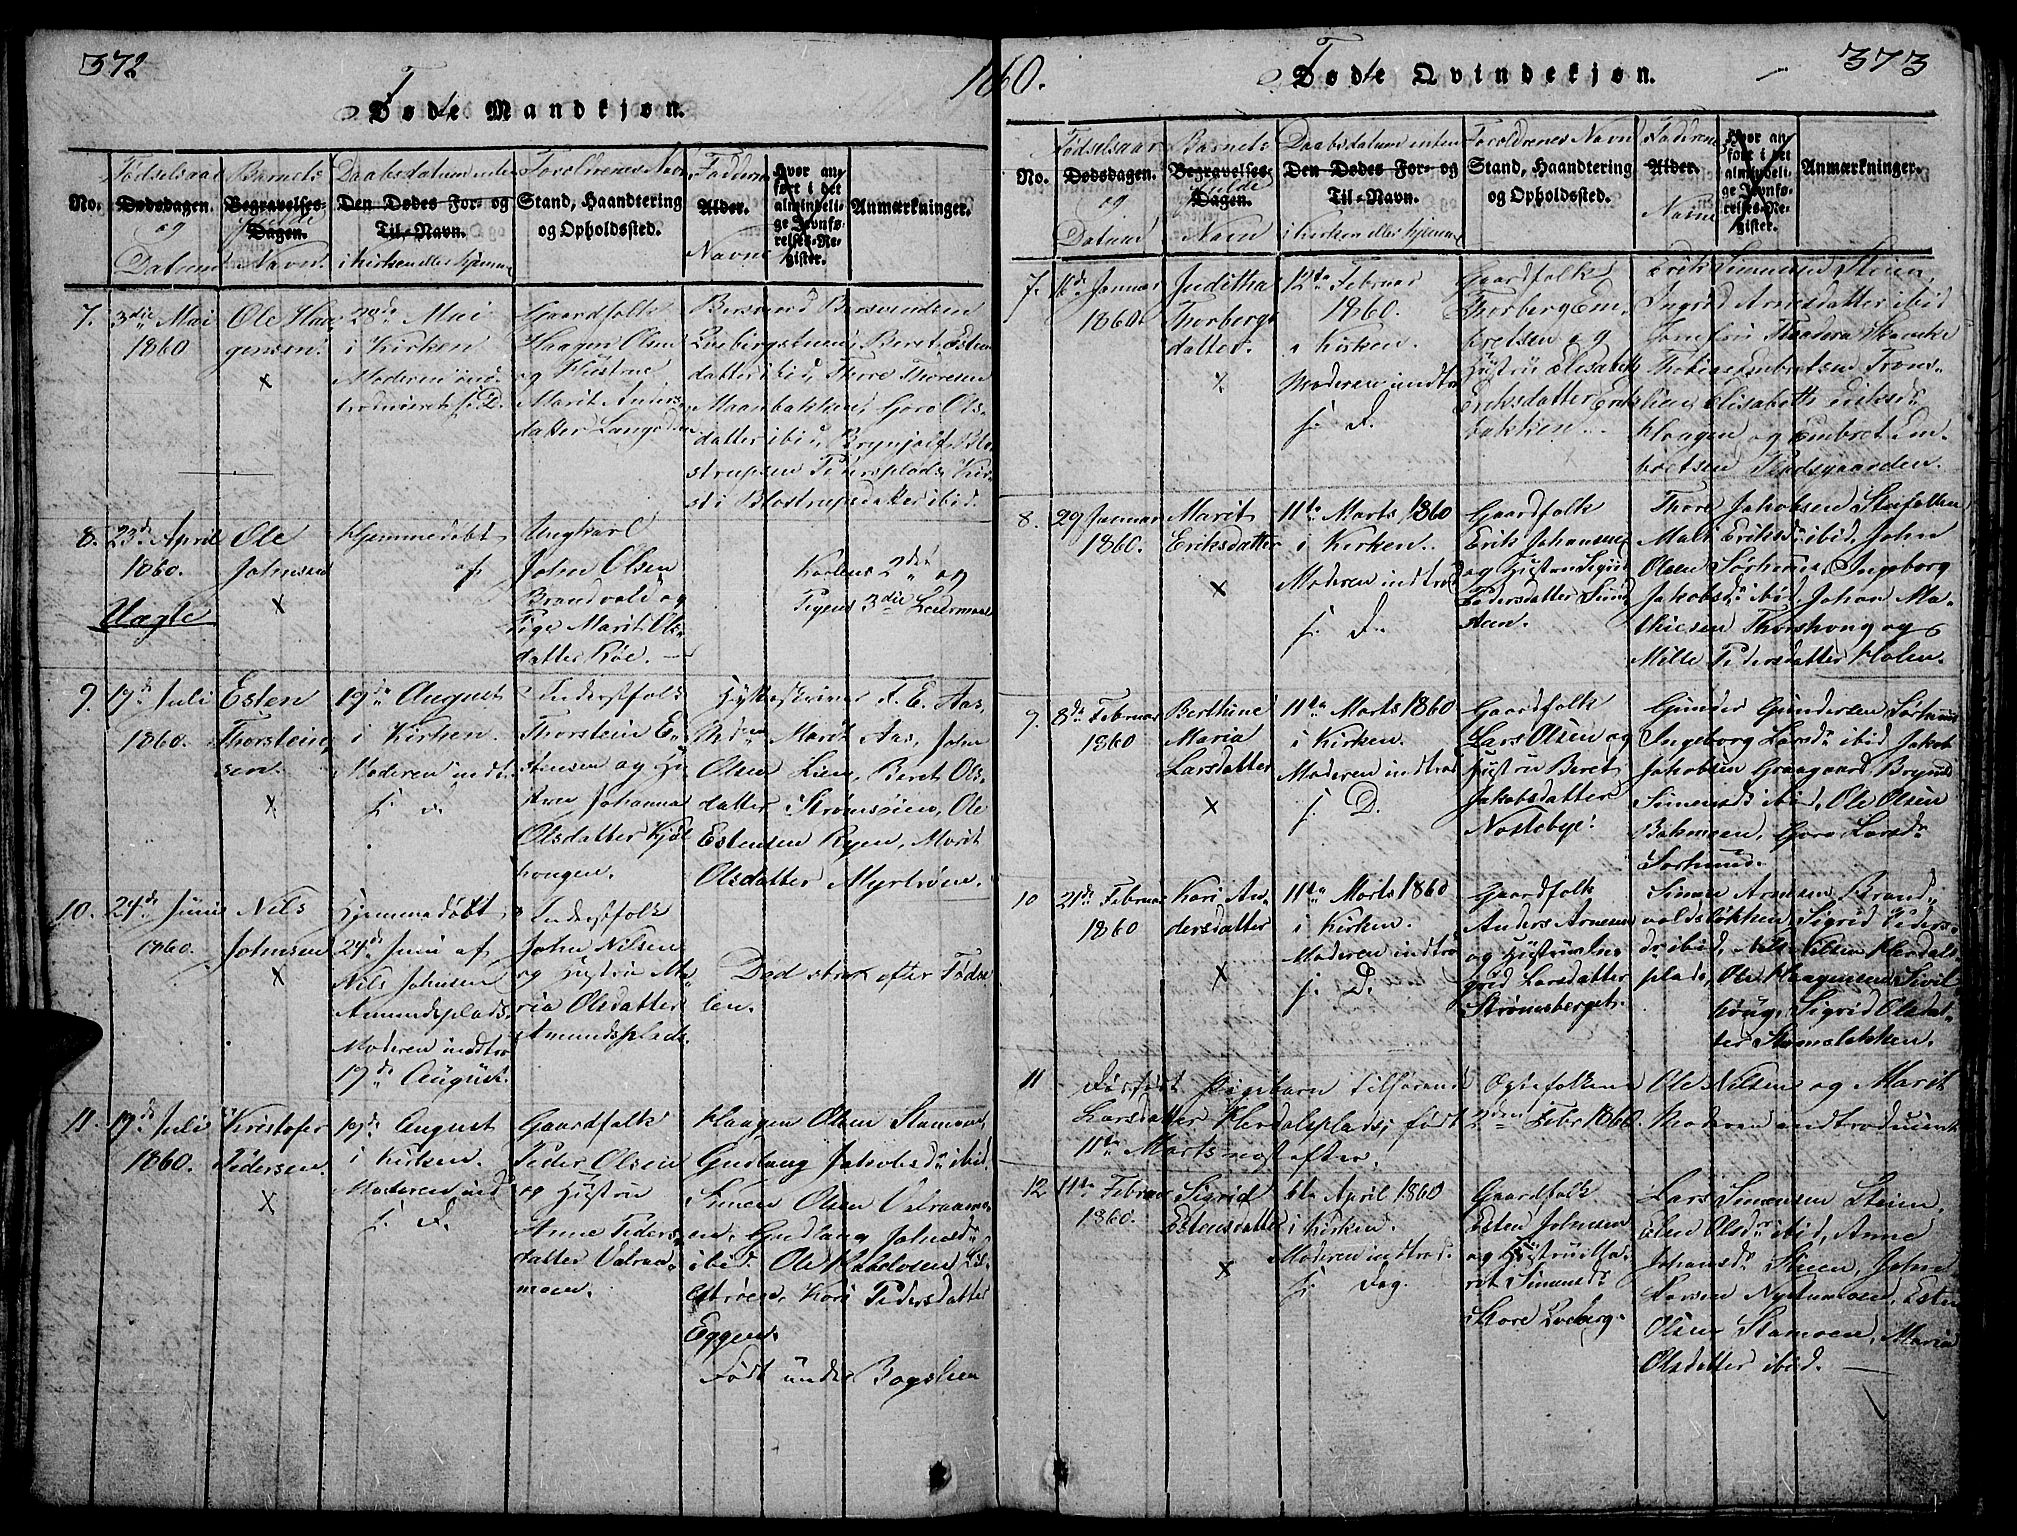 372
1860.
Døde Mandkjøn.
No.
Fødselsaar
Dødsdagen.
og
Datum
Barnets
Begravelses-
fulde
Dagen.
Navn.
Daabsdatum enten
Den Dødes For- og
Til-Navn.
i Kirken eller hjemme
Forældrenes Navn
Stand, Haandtering
og Opholdssted.
Faddernes
Alder.
Navne
Hvor an-
ført i det
almindeli-
ge Jevnfø-
relses-Re-
gister.
Anmærkninger.
7.
3die Mai
1860
Ole Haa-
gensen.
28de Mai
i Kirken
Moderen int-
troduceret s. D.
Gaardfolk
Haagen Olsen
og Hustrue
Marit Anders-
datter Langøen
Bersvend Bersvendsen
Lvebergstuen, Beret Estens
datter ibid, Thore Thoresen
Maanbakken, Goro Ols-
datter ibid, Brynjolf Blo-
strupsen Pedersplads, Kir-
sti Blostrupsdatter ibid.
8.
23de April
1860.
Uægte
Ole
Johnsen
Hjemmedøbt
af
Ungkarl
John Olsen
Brandvold og
Pige Marit Ols-
datter Røe.
Karlens 2det og
Pigens 3die Leiermaal
9.
17de Juli
1860.
Esten
Thorstein-
sen.
19de August
i Kirken.
Moderen indt.
s. d.
Inderstfolk
Thorstein E-
stensen og Hu-
strue Johanna
Olsdatter Kjøl-
hougen.
F. E. Aas,
Mdme Marit Aas, John
Olsen Lien, Beret Ols-
datter Strømsøien, Ole
Estensen Ryen, Marit
Olsdatter Myrtrøen.
10.
24de Juni
1860.
Nils
Johnsen
Hjemmedøbt
24de Juni af
Nils Johnsen
Amundsplads.
Moderen indtro.
19de August.
Inderstfolk
John Nilsen
og Hustru Ma-
ria Olsdatter
Amundsplads.
Død strax efter Føds-
len.
11.
17de Juli
1860.
Kristofer
Pedersen.
19de August
i Kirken.
Moderen ind
s. d.
Gaardfolk
Peder Olsen
og Hustru
Anne Peders-
datter Valraa-
moen.
Haagen Olsen Stamoen,
Gudlaug Jakobsdr ibid,
Simen Olsen Valraamo-
en, Gudlaug Johnsdr
ibid. Ole Halvorsen
Kari Pedersdatter
Eggen.
Født under Bogstien
373
Døde Qvindekjøn.
No.
Fødselsaar
Dødsdagen.
og
Datum
Barnets
Begravelses-
fulde
Dagen.
Navn
Daabsdatum enten
Den Dødes For- og
Til-Navn.
i Kirken eller hjemme
Forældrenes Navn
Stand, Haandtering
og Opholdssted.
Faddernes
Alder.
Navne
Hvor an-
ført i det
almindeli-
ge Jevnfø-
relses-Re-
gister.
Anmærkninger.
7.
Januar
1860.
Juditha
Thorbergs
datter.
12te Februar
1860.
i Kirken.
Moderen indtro
s. D.
Gaardfolk
Thorberg Em-
bretsen og
Hustru Elisabeth
Eriksdatter Enks-
bakken.
Erik Simensen Steien,
Ingrid Arnesdatter ibid
Jomfru Skancke
Embretsen Trons-
lien, Elisabeth Eriksdr
Haagen og Embret Em-
bretsen Kradsgaarden.
8.
29 Januar
1860.
Marit
Eriksdatter
11te Marts 1860
i Kirken.
Moderen indtrod
s. D.
Gaardfolk
Erik Johansen
og Hustru Sigrid
Pedersdatter Sund
steen.
Thore Jakobsen Steifallen
Malt Eriksd ibid, John
Olsen Sørhuus, Ingeborg
Jakobsdr ibid, Johan Ma-
thiesen Thorshoug og
Mille Pedersdatter Holen.
9.
8de Februar
1860
Berthine
Maria
Larsdatter
11te Marts 1860
i Kirken.
Moderen indtrod
s. D.
Gaardfolk
Lars Olsen og
Hustru Beret
Jakobsdatter
Nostebye.
Gunder Gundersen Sørhuus
Ingeborg Larsdr ibid, Jakob
Jakobsen Graagaard,
Simensd ibid, Ole Olsen
Bakmoen, Goro Larsdr
Sørhuus.
10
21de Februar
1860
Kari An-
dersdatter
11te Marts 1860
i Kirken.
Moderen indtro
s. D.
Gaardfolk
Anders Arnesen
og Hustru In-
grid Larsdatter
Strømsberget.
Simen Arnesen Brand-
voldsløkken, Sigrid Peders-
dr ibid, Nils Nilsen Herdals
plads, Ole Haagensen Sivil-
houg, Sigrid Olsdat-
ter Strømsløkken.
11
Dødfødt Pigebarn tilhørende Ægtefolkene Ole Nilsen og Marit
Larsdatter Herdalsplads, født 2den Febr 1860. Moderen indtroduceret
11te Marts næst efter.
12
11te Februar
1860.
Sigrid
Estensdatter
6te April 1860
i Kirken.
Moderen indtrod.
s. Dag.
Gaardfolk
Esten Johnsen
og Hustru Ma-
rit Simensdr
Store Lveberg.
Lars Simensen Steien,
Elen Olsdr ibid, Anne
Johansdr Steen, John
Larsen Nystumoen, Esten
Olsen Stamoen, Maria
Olsdatter ibid.